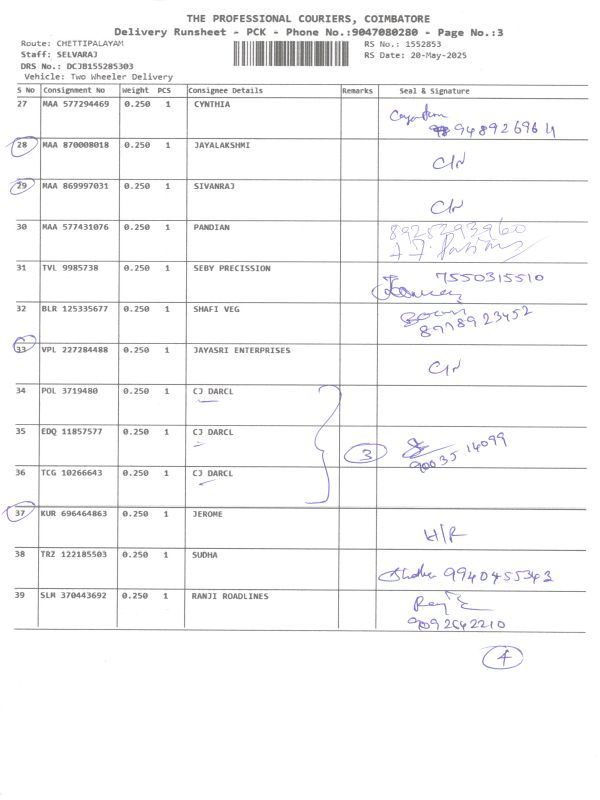 THE PROFESSIONAL COURIERS, COIMBATORE
Delivery Runsheet - PCK - Phone No.:9047080280 - Page No.:3
Route: CHETTIPALAYAM
RS No.: 1552853
Staff: SELVARAJ
RS Date: 20-May-2025
DRS No.: DCJB155285303
Vehicle: Two Wheeler Delivery
S No Consignment No Weight PCS Consignee Details Remarks Seal & Signature
27 MAA 577294469 0.250 1 CYNTHIA
9489269614
28 MAA 870008018 0.250 1 JAYALAKSHMI
C/N
29 MAA 869997031 0.250 1 SIVANRAJ
C/N
30 MAA 577431076 0.250 1 PANDIAN
8925393960
31 TVL 9985738 0.250 1 SEBY PRECISSION
7550315510
32 BLR 125335677 0.250 1 SHAFI VEG
8978923452
33 VPL 227284488 0.250 1 JAYASRI ENTERPRISES
C/N
34 POL 3719480 0.250 1 CJ DARCL
35 EDQ 11857577 0.250 1 CJ DARCL
3
90035 14099
36 TCG 10266643 0.250 1 CJ DARCL
37 KUR 696464863 0.250 1 JEROME
H/R
38 TRZ 122185503 0.250 1 SUDHA
9940455343
39 SLM 370443692 0.250 1 RANJI ROADLINES
9092642210
4